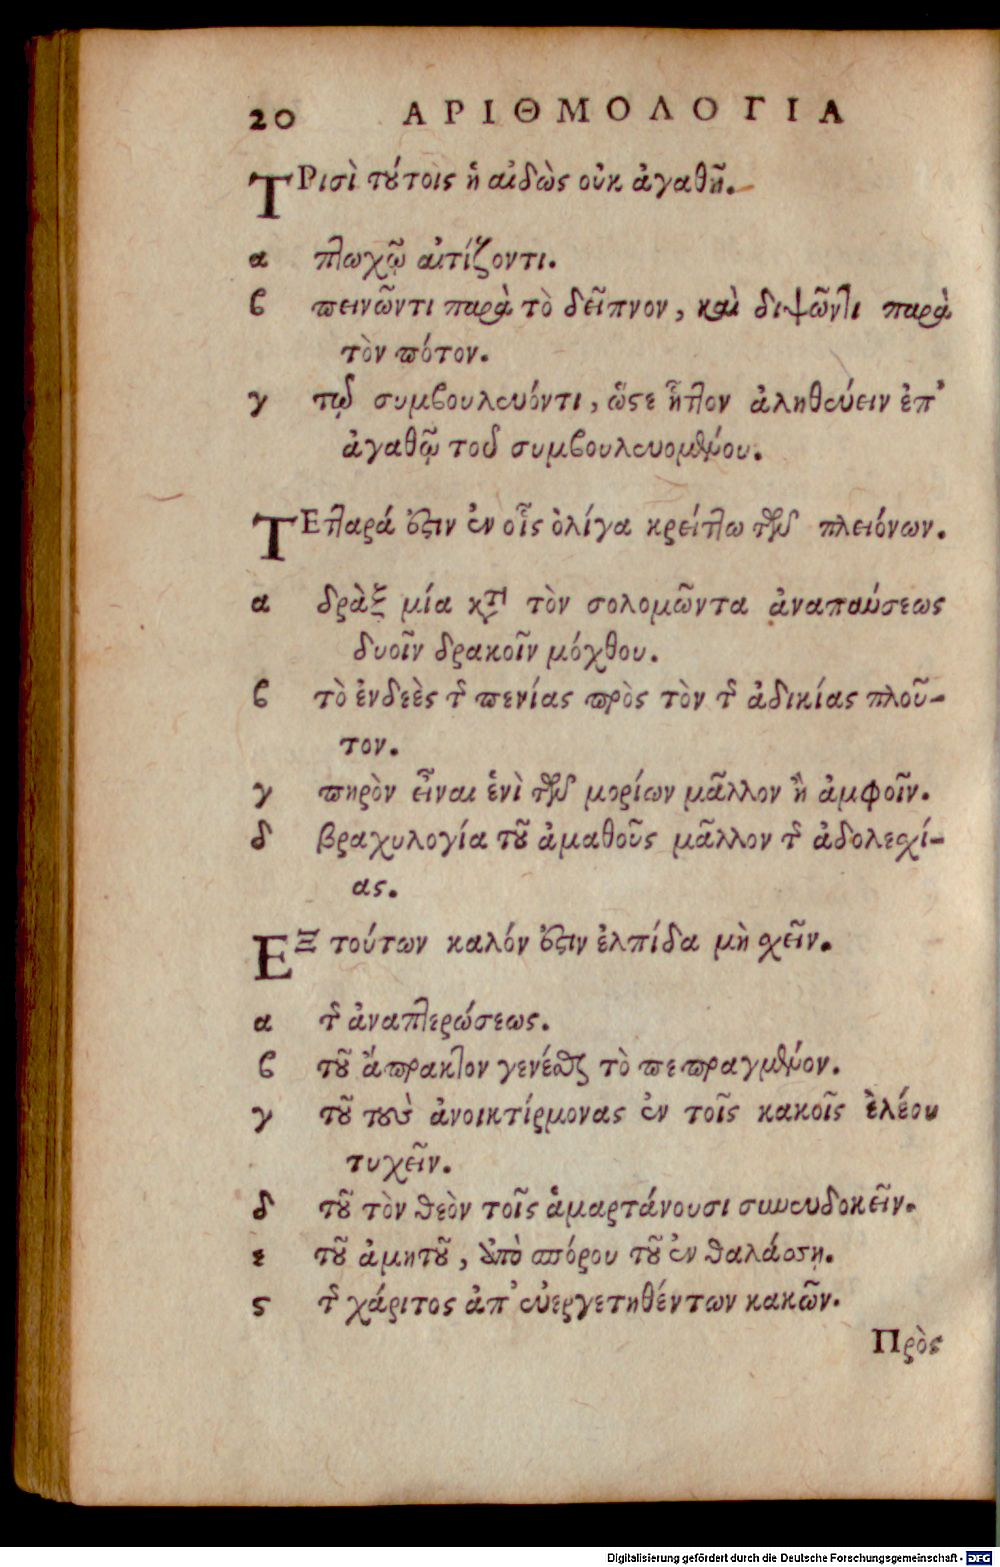 20 ΑΡΙΘΜΟΛΟΓΙΑ
ΤΡισὶ τούτοις ἡ αἰδὼς οὐκ ἀγαθῆ.
α πτωχῷ αἰτίζοντι.
β πεινῶντι παρὰ τὸ δεῖπνον, καὶ διψῶντι παρὰ
τὸν πότον.
γ τῷ συμβουλεύοντι, ὥστε ἧττον ἀληθεύειν ἐπ'
ἀγαθῷ τοῦ συμβουλευομένου.
ΤΕτταρά ἐστιν ἐν οἷς ὀλίγα κρείττω τῶν πλειόνων.
α δρὰξ μία κατὰ τὸν σολομῶντα ἀναπαύσεως
δυοῖν δρακοῖν μόχθου.
β τὸ ἐνδεὲς τῆς πενίας πρὸς τὸν τῆς ἀδικίας πλοῦ-
τον.
γ πηρὸν εἶναι ἑνὶ τῶν μορίων μᾶλλον ἢ ἀμφοῖν.
δ βραχυλογία τοῦ ἀμαθοῦς μᾶλλον τῆς ἀδολεσχί-
ας.
ΕΞ τούτων καλόν ἐστιν ἐλπίδα μὴ σχεῖν.
α τῆς ἀναπτερώσεως.
β τοῦ ἄπρακτον γενέσθαι τὸ πεπραγμένον.
γ τοῦ τοὺς ἀνοικτίρμονας ἐν τοῖς κακοῖς ἐλέου
τυχεῖν.
δ τοῦ τὸν θεὸν τοῖς ἁμαρτάνουσι συνευδοκεῖν.
ε τοῦ ἀμητοῦ, ἀπὸ σπόρου τοῦ ἐν θαλάσσῃ.
ς τῆς χάριτος ἀπ' εὐεργετηθέντων κακῶν.
Πρὸς
Digitalisierung gefördert durch die Deutsche Forschungsgemeinschaft - DFG